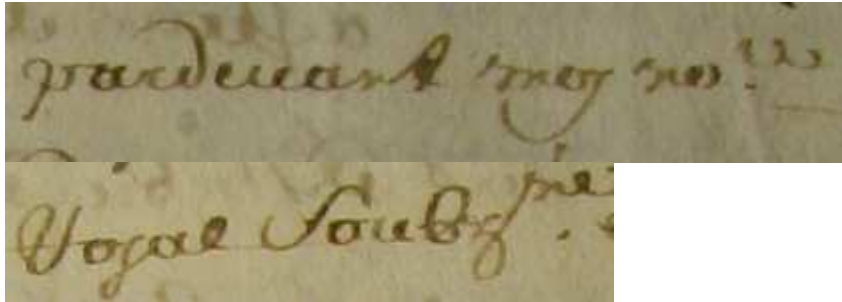 pardeuant moy no.re
Royal Soubz.né